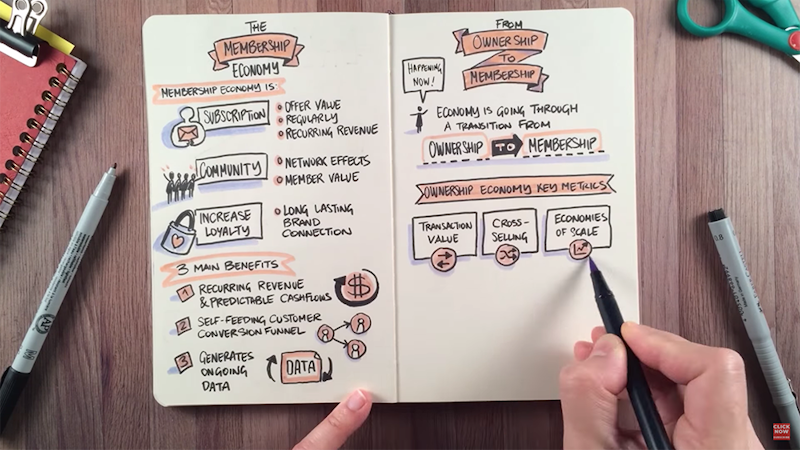 THE
MEMBERSHIP
ECONOMY
MEMBERSHIP ECONOMY IS:
SUBSCRIPTION
OFFER VALUE
REGULARLY
RECURRING REVENUE
COMMUNITY
NETWORK EFFECTS
MEMBER VALUE
INCREASE
LOYALTY
LONG LASTING
BRAND
CONNECTION
3 MAIN BENEFITS
1 RECURRING REVENUE
& PREDICTABLE CASHFLOWS
$
2 SELF-FEEDING CUSTOMER
CONVERSION FUNNEL
3 GENERATES
ONGOING
DATA
DATA
FROM
OWNERSHIP
TO
MEMBERSHIP
HAPPENING
NOW!
ECONOMY IS GOING THROUGH
A TRANSITION FROM
OWNERSHIP TO MEMBERSHIP
OWNERSHIP ECONOMY KEY METRICS
TRANSACTION
VALUE
CROSS-
SELLING
ECONOMIES
OF SCALE
CLICK
NOW